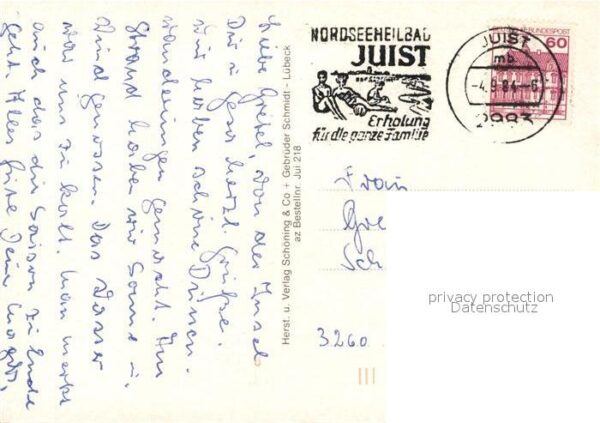 Liebe Gretel, von der Insel
Dir u. Gesa herzl. Grüße.
Wir haben schöne Dünen-
wanderungen gemacht. Am
Strand haben wir Sonne u.
Wind genossen. Das Wasser
war uns zu kalt. Man merkt
auch das die Saison zu Ende
geht. Alles Gute Deine
Herst. u. Verlag Schöning & Co + Gebrüder Schmidt - Lübeck
az Bestellnr. Jui 218
NORDSEEHEILBAD
JUIST
Erholung
für die ganze Familie
JUIST
mb
-4.9.84.-6
2983
BUNDESPOST
60
Frau
Gre
Sch
3260
privacy protection
Datenschutz